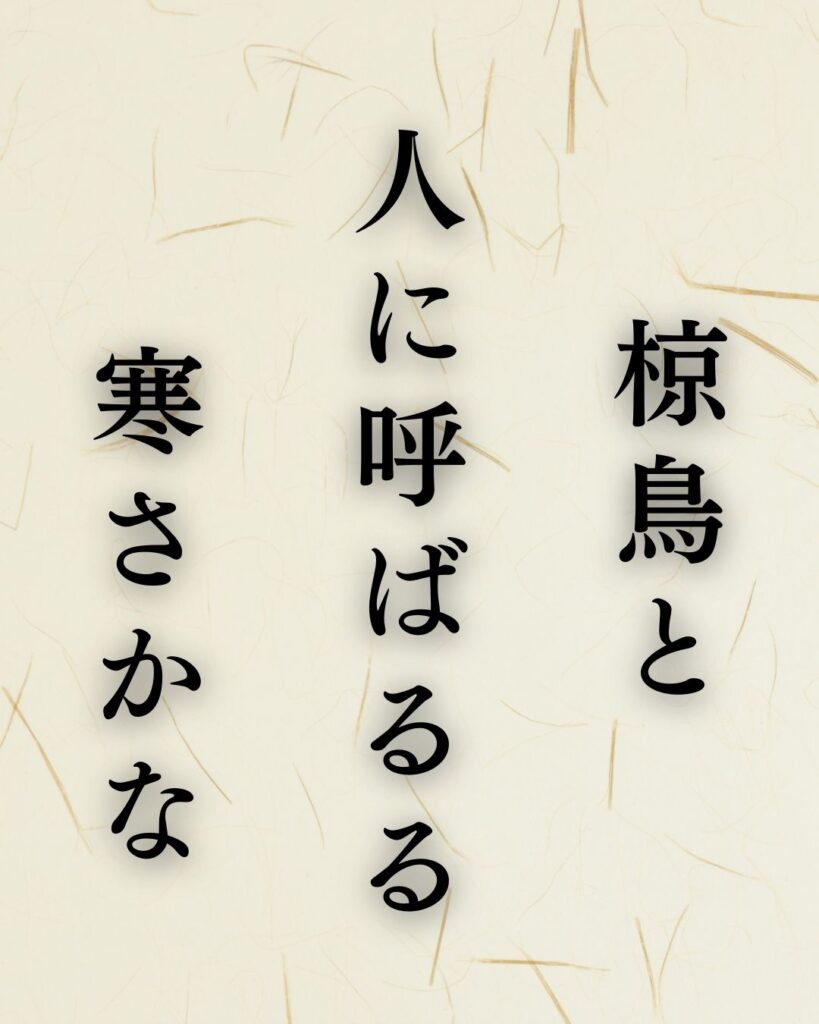 椋鳥と
人に呼ばるる
寒さかな